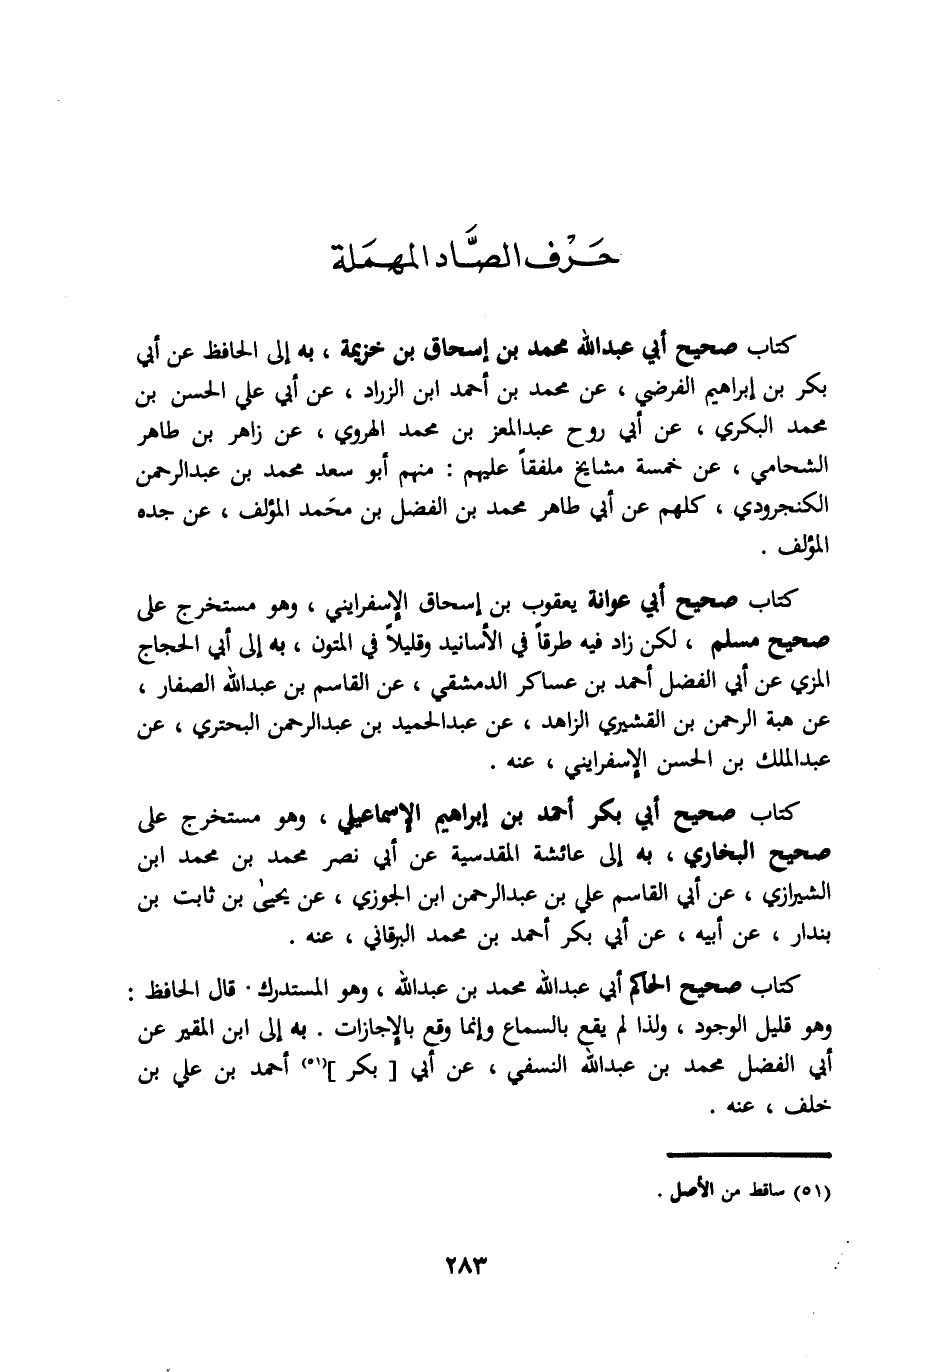 حَرْف الصَّاد المهمَلة
كتاب صحيح أبي عبدالله محمد بن إسحاق بن خزيمة ، به إلى الحافظ عن أبي
بكر بن إبراهيم الفرضي ، عن محمد بن أحمد ابن الزراد ، عن أبي علي الحسن بن
محمد البكري ، عن أبي روح عبدالمعز بن محمد الهروي ، عن زاهر بن طاهر
الشحامي ، عن خمسة مشايخ ملفقاً عليهم : منهم أبو سعد محمد بن عبدالرحمن
الكنجرودي ، كلهم عن أبي طاهر محمد بن الفضل بن محَمد المؤلف ، عن جده
المؤلف .
كتاب صحيح أبي عوانة يعقوب بن إسحاق الإسفرايني ، وهو مستخرج على
صحيح مسلم ، لكن زاد فيه طرقاً في الأسانيد وقليلاً في المتون ، به إلى أبي الحجاج
المزي عن أبي الفضل أحمد بن عساكر الدمشقي ، عن القاسم بن عبدالله الصفار ،
عن هبة الرحمن بن القشيري الزاهد ، عن عبدالحميد بن عبدالرحمن البحتري ، عن
عبدالملك بن الحسن الإسفرايني ، عنه .
كتاب صحيح أبي بكر أحمد بن إبراهيم الإسماعيلي ، وهو مستخرج على
صحيح البخاري ، به إلى عائشة المقدسية عن أبي نصر محمد بن محمد ابن
الشيرازي ، عن أبي القاسم علي بن عبدالرحمن ابن الجوزي ، عن يحيىٰ بن ثابت بن
بندار ، عن أبيه ، عن أبي بكر أحمد بن محمد البرقاني ، عنه .
كتاب صحيح الحاكم أبي عبدالله محمد بن عبدالله ، وهو المستدرك · قال الحافظ :
وهو قليل الوجود ، ولذا لم يقع بالسماع وإنما وقع بالإجازات . به إلى ابن المقير عن
أبي الفضل محمد بن عبدالله النسفي ، عن أبي [ بكر ](٥١) أحمد بن علي بن
خلف ، عنه .
(٥١) ساقط من الأصل .
٢٨٣